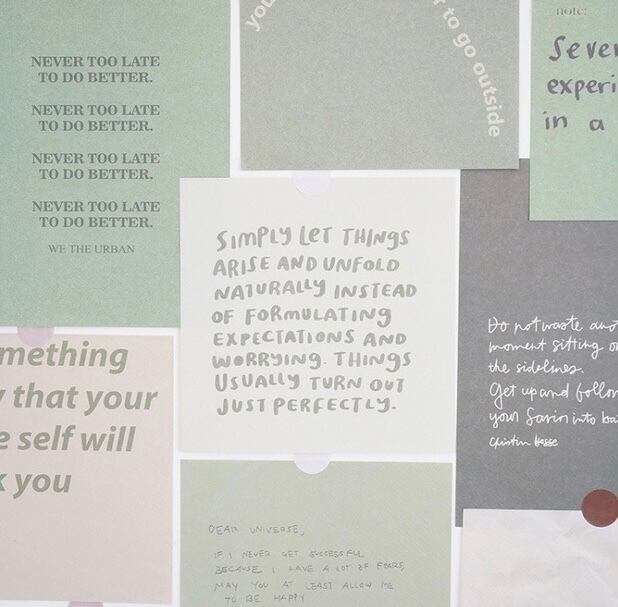 NEVER TOO LATE
TO DO BETTER.
NEVER TOO LATE
TO DO BETTER.
NEVER TOO LATE
TO DO BETTER.
NEVER TOO LATE
TO DO BETTER.
WE THE URBAN
you
to go outside
note:
in a
SIMPLY LET THINGS
ARISE AND UNFOLD
NATURALLY INSTEAD
OF FORMULATING
EXPECTATIONS AND
WORRYING. THINGS
USUALLY TURN OUT
JUST PERFECTLY.
Do not waste
moment sitting
the sidelines.
Get up and
your Savior into
that your
self will
you
DEAR UNIVERSE,
IF I NEVER GET SUCCESSFUL
BECAUSE I HAVE A LOT OF FEARS,
MAY YOU AT LEAST ALLOW ME
TO BE HAPPY